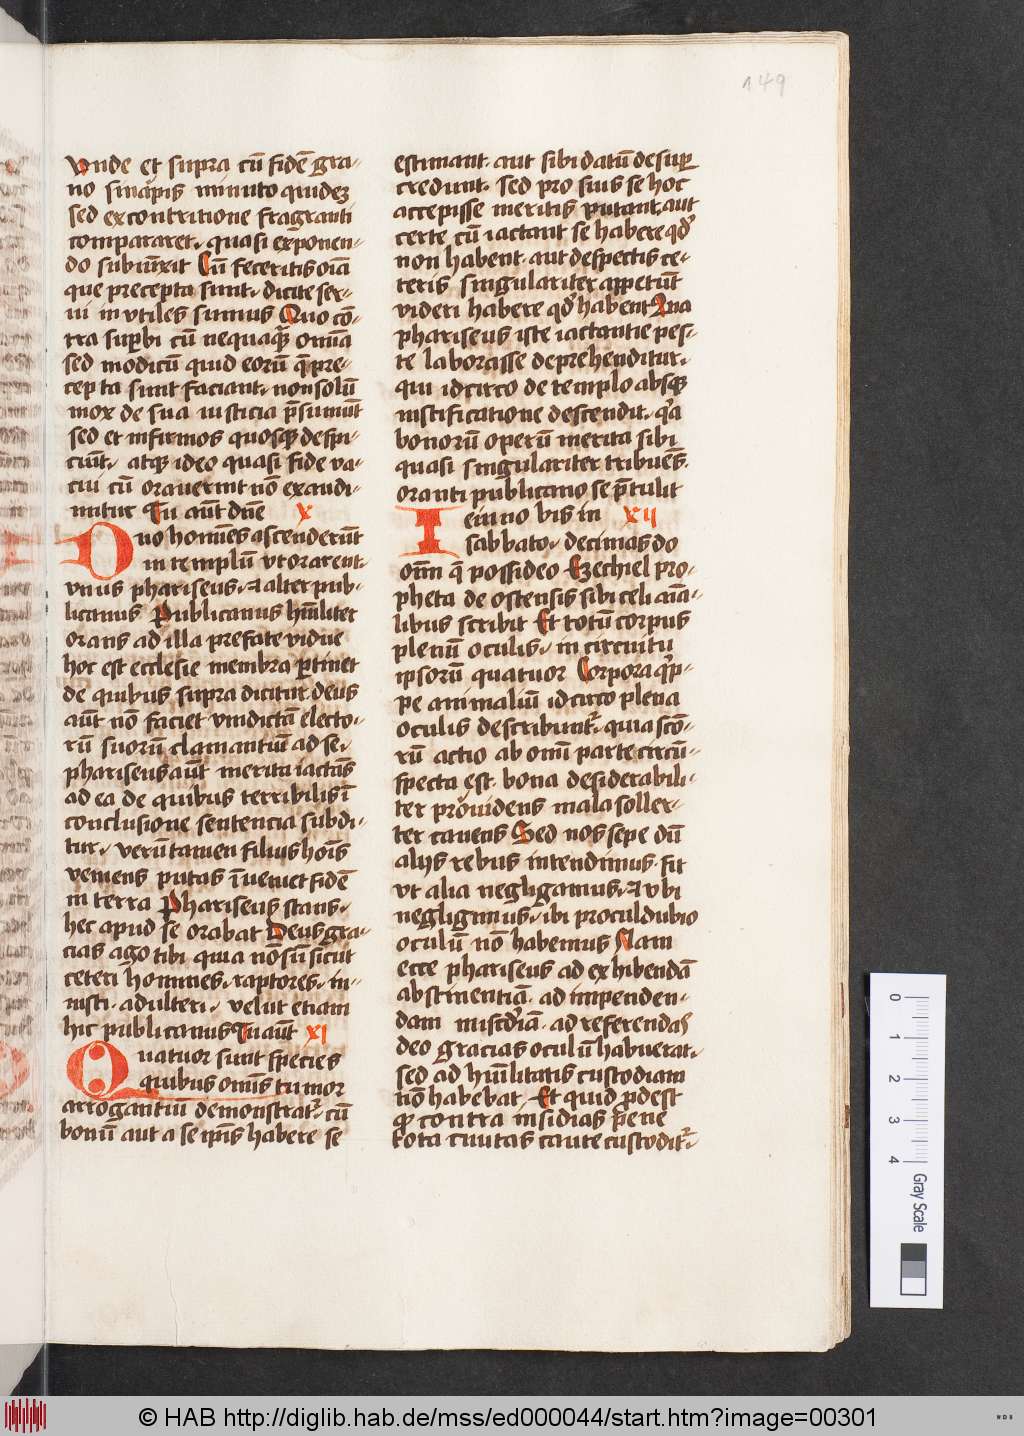 149
vnde et supra cū fidē gra-
no sinapis minuto quidez
sed excontritione fragranti
compararet. quasi exponen-
do subiūxit Cū feceritis oīa
que precepta sunt. dicite ser-
ui inutiles sumus Quo cō-
tra suꝑbi cū nequaꝗ̄ omīa
sed modicū quid eorū q̄ pre-
cepta sunt faciant. non solū
mox de sua iusticia p̄sumūt
sed et infirmos quosꝗ despi-
ciūt. atꝗ ideo quasi fide va-
cui cū orauerint nō exaudi-
untur Tu aūt dn̄e X
Duo homīes ascenderūt
in templū vt orarent.
vnus phariseus. ⁊ alter pub-
licanus Publicanus hūīliter
orans ad illa prefate vidue
hoc est ecclesie membra ꝑtinet
de quibus supra dicitur. deus
aūt nō faciet vindictā electo-
rū suorū clamantiū ad se.
phariseus aūt merita iactās
ad ea de quibus terribilis ī
conclusione sentencia subdi-
tur. verūtamen filius hoīs
veniens putas īueniet fidē
in terra Phariseus stans.
hec apud se orabat Deus gra-
cias ago tibi quia nō sū sicut
ceteri homines. raptores. in-
iusti. adulteri. velut etiam
hic publicanus Tu aūt XI
Quatuor sunt species
quibus omīs tumor
arrogantiū demonstrat̄. cū
bonū aut a se ipīs habere se
estimant. aut sibi datū desuꝑ
credunt. sed pro suis se hoc
accepisse meritis putant. aut
certe cū iactant se habere qd̄
non habent. aut despectis ce-
teris singulariter appetūt
videri habere qd̄ habent Qua
phariseus iste iactantie pes-
te laborasse deprehenditur.
qui idcirco de templo absꝗ
iustificatione descendit. qͣa
bonorū operū merita sibi
quasi singulariter tribuēs.
oranti publicano se p̄tulit
Ieiuno bis in XII
sabbato. decimas do
om̄ q̄ possideo Ezechiel pro-
pheta de ostensis sibi celi aīa-
libus scribit Et totū corpus
plenū oculis. in circuitu
ipsorū quatuor Corpora qͥp-
pe animaliū idcirco plena
oculis describunt̄. quia scō-
rū actio ab omī parte circū-
specta est. bona desiderabili-
ter prouidens mala soller-
ter cauens Sed nos sepe dū
alijs rebus intendimus. fit
vt alia negligamus. ⁊ vbi
negligimus. ibi proculdubio
oculū nō habemus Nam
ecce phariseus ad exhibendā
abstinentiā. ad impenden-
dam mīscdīam. ad referendas
deo gracias oculū habuerat.
sed ad hūīlitatis custodiam
nō habebat. Et quid ꝓdest
ꝙ contra insidias pene
tota ciuitas caute custodit̄.
0
1
2
3
4
Gray Scale
© HAB http://diglib.hab.de/mss/ed000044/start.htm?image=00301
WDB